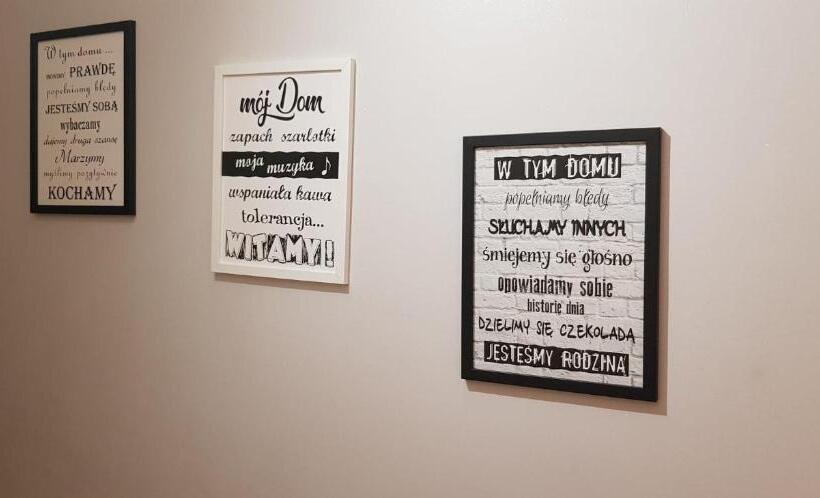 W tym domu ...
mówimy PRAWDĘ
popełniamy błędy
JESTEŚMY SOBĄ
wybaczamy
dajemy drugą szansę
Marzymy
myślimy pozytywnie
KOCHAMY
mój Dom
zapach szarlotki
moja muzyka ♪
wspaniała kawa
tolerancja...
WITAMY!
W TYM DOMU
popełniamy błędy
SŁUCHAMY INNYCH
śmiejemy się głośno
opowiadamy sobie
historię dnia
DZIELIMY SIĘ CZEKOLADĄ
JESTEŚMY RODZINĄ